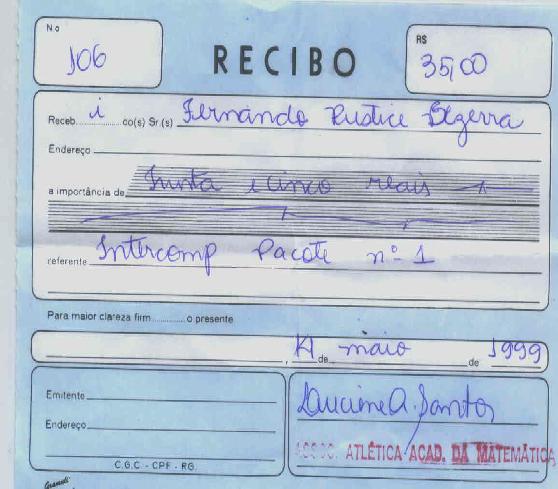 No
106
RECIBO
R$
35,00
Receb. i co(s) Sr.(s) Fernando Rustice Bezerra
Endereço
a importância de trinta e cinco reais
referente Intercomp Pacote nº 1
Para maior clareza firm o presente
, 14 de maio de 1999
Emitente
Endereço
C.G.C. - CPF - RG.
A. Santos
ASSOC. ATLÉTICA ACAD. DA MATEMÁTICA